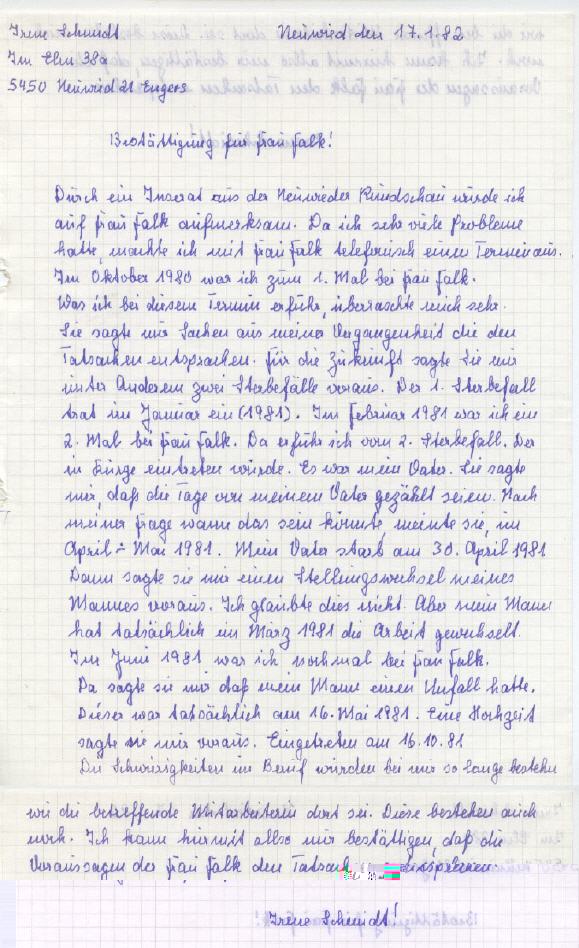 Irene Schmidt Neuwied den 17.1.82
Im Elm 38a
5450 Neuwied 21 Engers
Bestättigung für Frau Falk!
Durch ein Inserat aus der Neuwieder Rundschau wurde ich
auf Frau Falk aufmerksam. Da ich sehr viele Probleme
hatte, machte ich mit Frau Falk telefonisch einen Termin aus.
Im Oktober 1980 war ich zum 1. Mal bei Frau Falk.
Was ich bei diesem Termin erfuhr, überraschte mich sehr.
Sie sagte mir Sachen aus meiner Vergangenheit die den
Tatsachen entsprachen. Für die Zukunft sagte Sie mir
unter Anderem zwei Sterbefälle voraus. Der 1. Sterbefall
trat im Januar ein (1981). Im Februar 1981 war ich ein
2. Mal bei Frau Falk. Da erfuhr ich vom 2. Sterbefall. Der
in Kürze eintreten würde. Es war mein Vater. Sie sagte
mir, daß die Tage von meinem Vater gezählt seien. Nach
meiner Frage wann das sein könnte, meinte sie, im
April - Mai 1981. Mein Vater starb am 30. April 1981
Dann sagte sie mir einen Stellungswechsel meines
Mannes voraus. Ich glaubte dies nicht. Aber mein Mann
hat tatsächlich im März 1981 die Arbeit gewechselt.
Im Juni 1981 war ich nochmal bei Frau Falk.
Da sagte sie mir daß mein Mann einen Unfall hatte.
Dieser war tatsächlich am 16. Mai 1981. Eine Hochzeit
sagte sie mir voraus. Eingetreten am 16.10.81
Die Schwirigkeiten im Beruf würden bei mir so lange bestehn
wie die betreffende Mitarbeiterin dort sei. Diese bestehen auch
noch. Ich kann hiermit allso nur bestättigen, daß die
Voraussagen der Frau Falk den Tatsach entsprechen
Irene Schmidt!